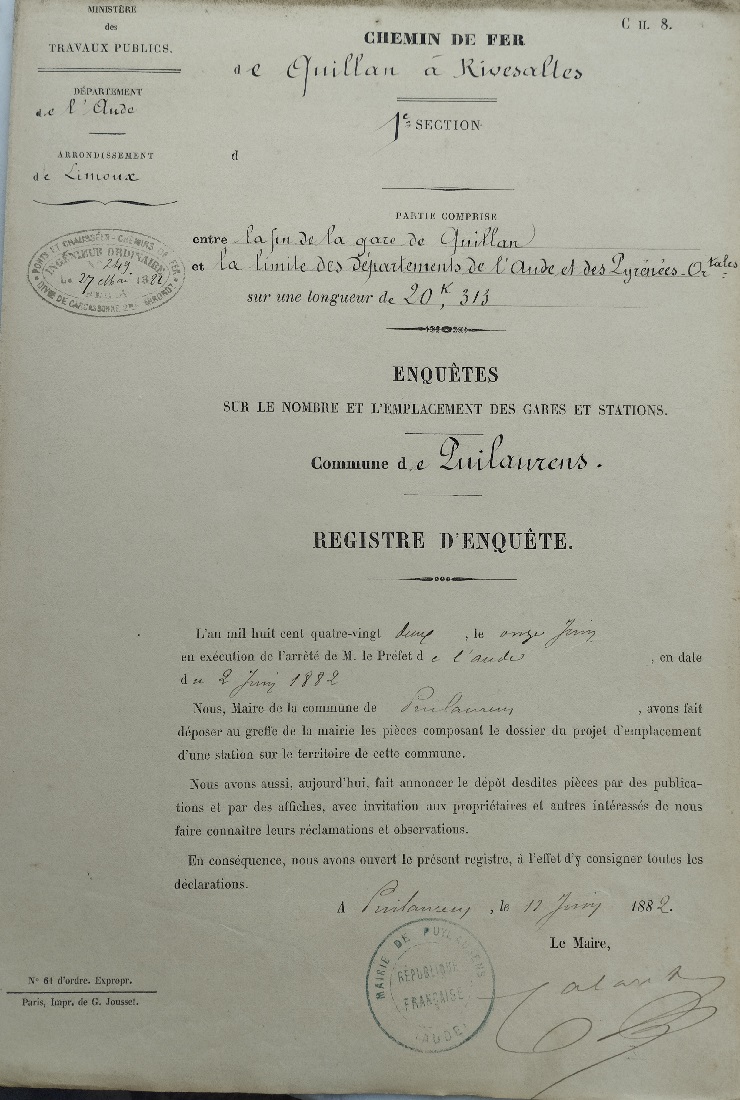 MINISTÈRE
des
TRAVAUX PUBLICS.
DÉPARTEMENT
de l'Aude
ARRONDISSEMENT
de Limoux
PONTS ET CHAUSSÉES - CHEMINS DE FER
INGÉNIEUR ORDINAIRE
249
Le 27 Mai 1882
C H. 8.
CHEMIN DE FER
de Quillan à Rivesaltes
1e SECTION
d
PARTIE COMPRISE
entre la fin de la gare de Quillan
et la limite des Départements de l'Aude et des Pyrénées-Ortales
sur une longueur de 20K, 313
ENQUÊTES
SUR LE NOMBRE ET L'EMPLACEMENT DES GARES ET STATIONS.
Commune de Puilaurens.
REGISTRE D'ENQUÊTE.
L'an mil huit cent quatre-vingt deux, le onze Juin
en exécution de l'arrêté de M. le Préfet de l'aude, en date
du 2 Juin 1882
Nous, Maire de la commune de Puilaurens, avons fait
déposer au greffe de la mairie les pièces composant le dossier du projet d'emplacement
d'une station sur le territoire de cette commune.
Nous avons aussi, aujourd'hui, fait annoncer le dépôt desdites pièces par des publica-
tions et par des affiches, avec invitation aux propriétaires et autres intéressés de nous
faire connaître leurs réclamations et observations.
En conséquence, nous avons ouvert le présent registre, à l'effet d'y consigner toutes les
déclarations.
A Puilaurens, le 11 Juin 1882.
Le Maire,
MAIRIE DE PUYLAURENS
RÉPUBLIQUE
FRANÇAISE
(AUDE)
N° 61 d'ordre. Expropr.
Paris, Impr. de G. Jousset.